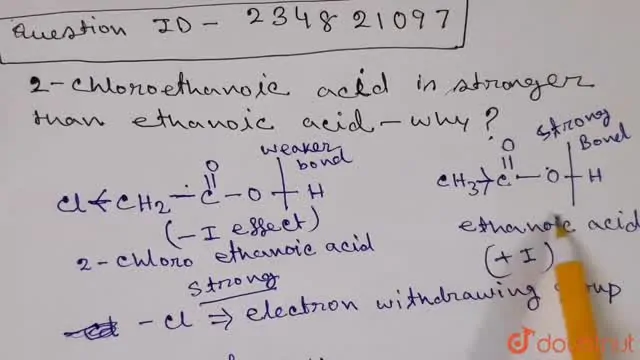 Question ID - 234821097
2-chloroethanoic acid is stronger
than ethanoic acid - why?
weaker
bond
strong
Bond
O
Cl CH2 - C - O - H
O
CH3 C - O - H
(-I effect)
2-chloro ethanoic acid
ethanoic acid
(+I)
strong
-Cl ⇒ electron withdrawing
doubtnut